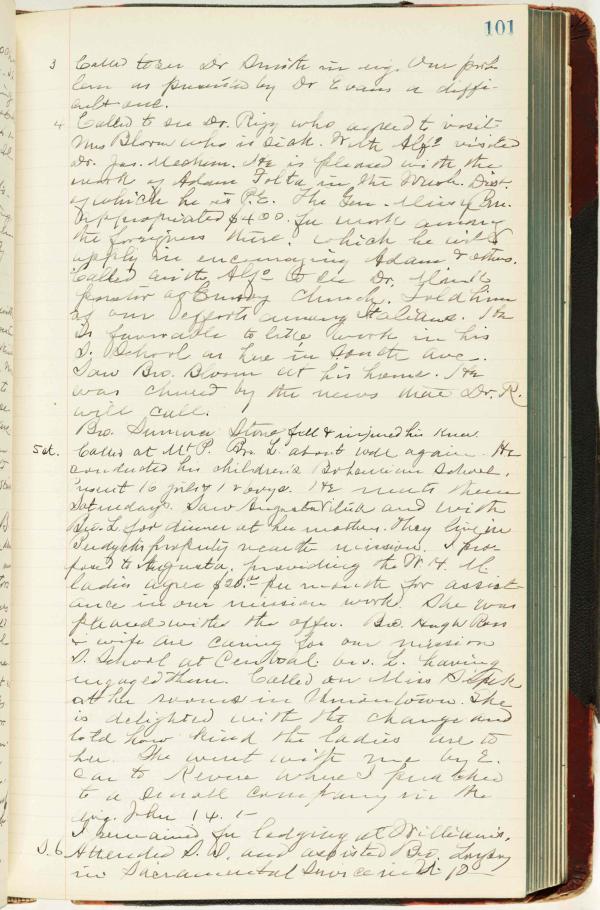 101
3 Called to see Dr Smith in evg. Our prob-
lem as presented by Dr Evans a diffi-
cult one.
4 Called to see Dr. Rigg who agreed to visit
Mrs Bloom who is sick. With Alfo visited
Dr. Jas. Mechem. He is pleased with the
work of Adam Tolta in the Wash. Dist.
of which he is P.E. The Gen. Missy Com.
appropriated $400. for work among
the foreigners there, which he will
apply in encouraging Adam & others.
Called with Alfo to see Dr.
pastor of Church. Told him
of our efforts among Italians. He
is favorable to like work in his
S. School as here in South Ave.
Saw Bro. Bloom at his home. He
was cheered by the news that Dr. R.
will call.
Bro. Sumner Stone fell & injured his knee
5 at. Called at Mt P. Bro. L. about well again. He
conducted his children's Bohemian School,
present 16 girls & 12 boys. He meets them
Saturdays. Saw Augusta and with
Bro. L. for dinner at her mothers. They live in
property near the mission. I pro-
posed to Augusta, providing the W. H. M.
ladies agree $20.00 per month for assist-
ance in our mission work. She was
pleased with the offer. Bro. Hugh Ross
& wife are caring for our mission
S. School at Cen Coal. Bro. L. having
engaged them. Called on Miss
at her rooms in Uniontown. She
is delighted with the change and
told how kind the ladies are to
her. She went with me by E.
Car to Revere where I preached
to a small company in the
evg. John 14.1-
I remained for lodging at Williams.
S. 6 Attended S. S. and assisted Bro.
in Sacramental Service in